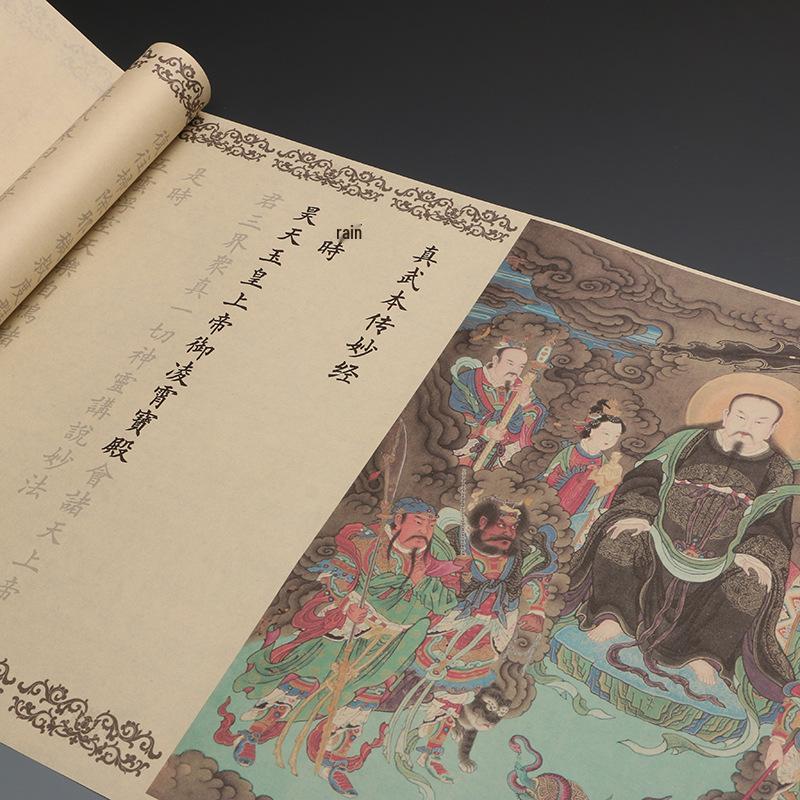 真武本传妙经
rain
時
昊天玉皇上帝御凌霄寶殿會諸天上帝
君三界衆真一切神靈講說妙法
是時